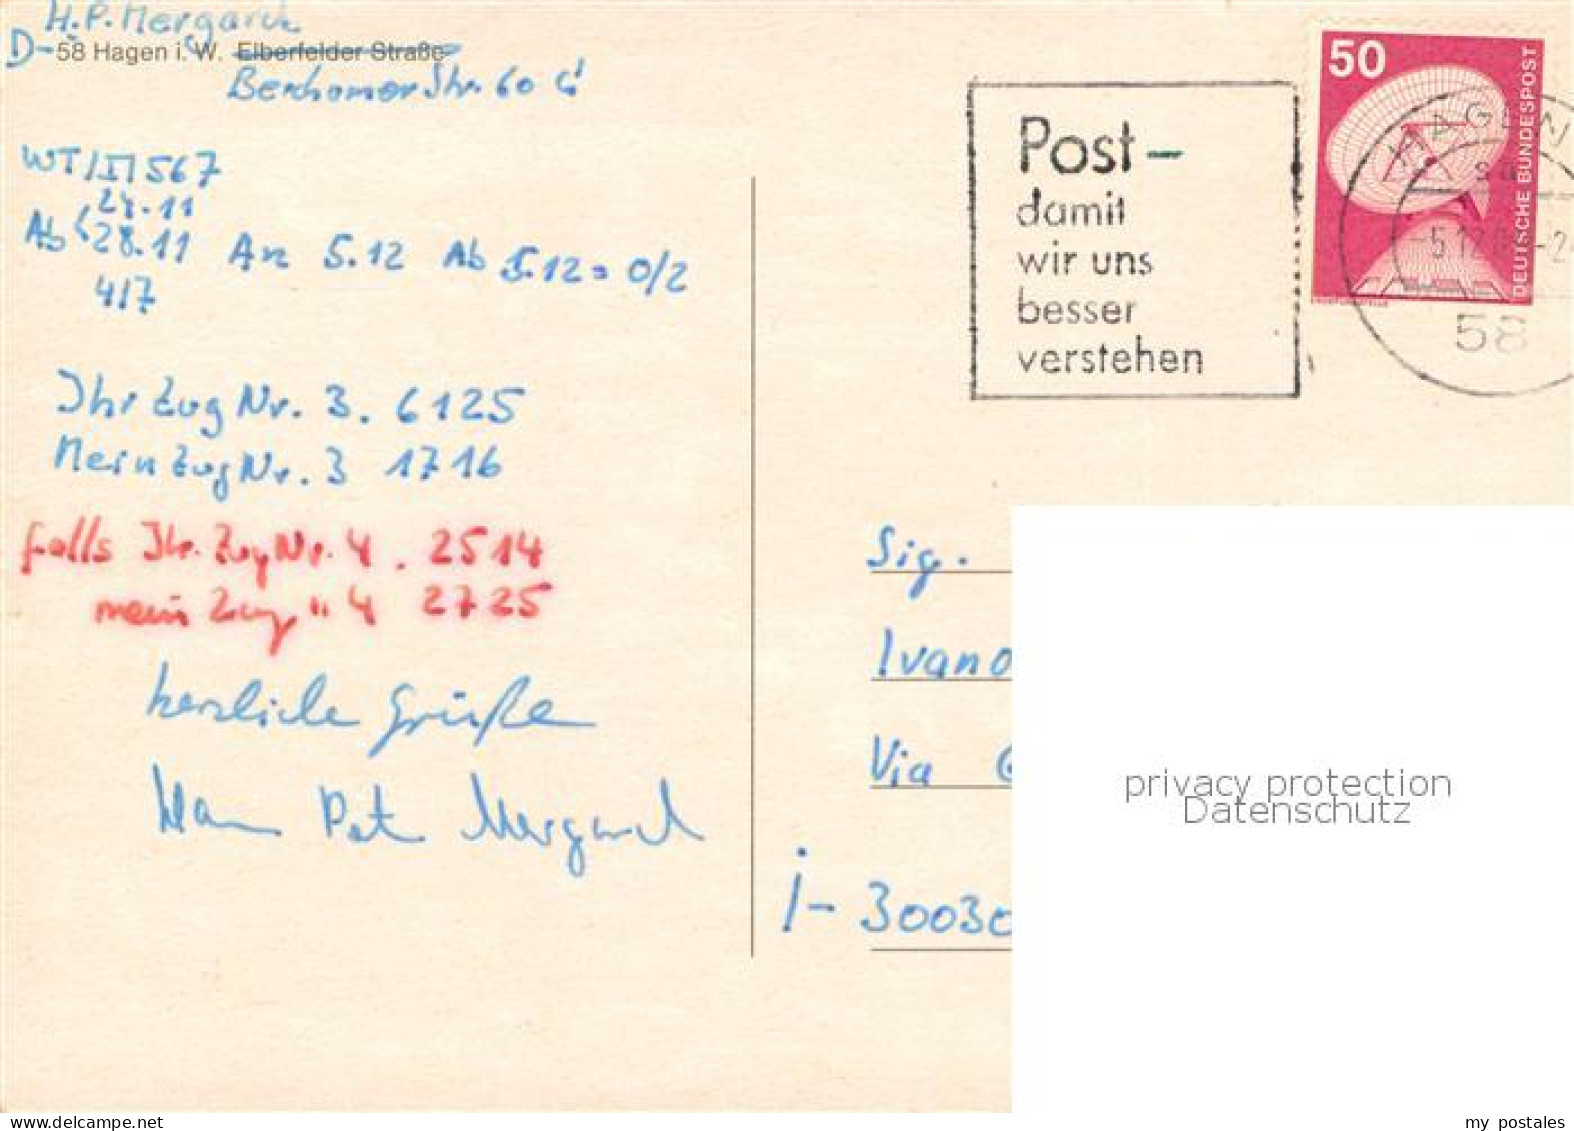 H.P. Mergard
D-58 Hagen i. W. Elberfelder Straße
Str. 60
WT/II 567
24.11
Ab 28.11 An 5.12 Ab 5.12 = 0/2
4/7
Ihr Zug Nr. 3. 6125
Mein Zug Nr. 3 1716
falls Ihr Zug Nr. 4. 2514
mein Zug " 4 2725
herzliche Grüße
Peter Mergard
Post-
damit
wir uns
besser
verstehen
50
DEUTSCHE BUNDESPOST
HAGEN
58
Sig.
Ivano
Via G
I- 30030
privacy protection
Datenschutz
www.delcampe.net
my postales